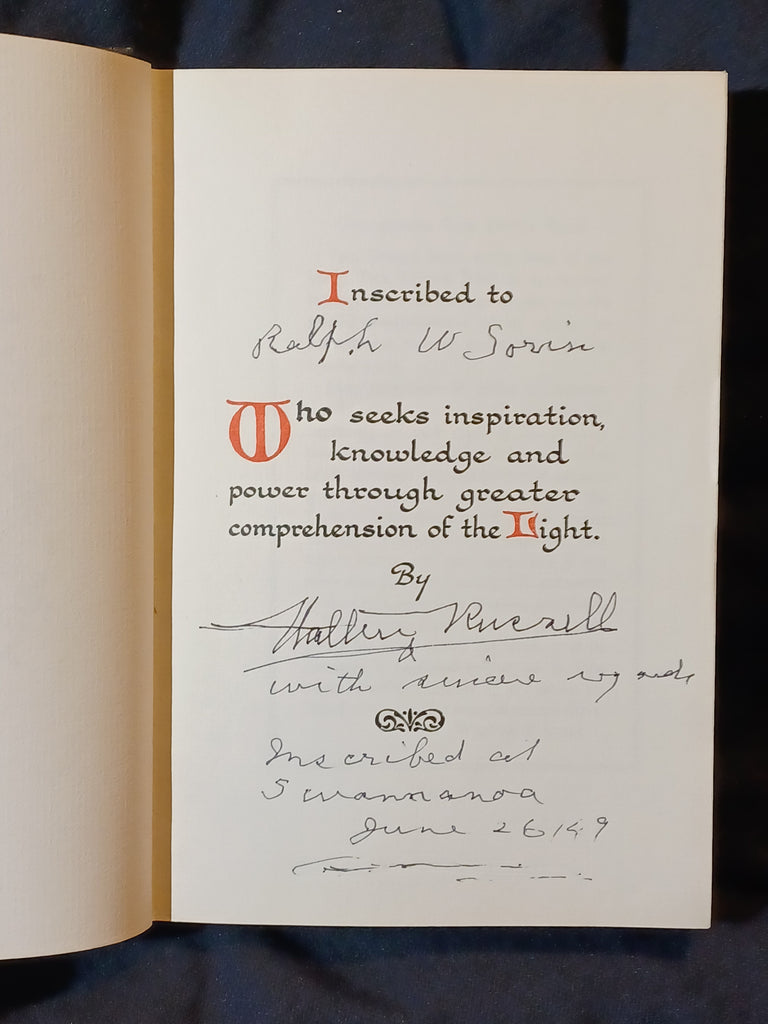 Inscribed to
Ralph W Sorvin
Who seeks inspiration,
knowledge and
power through greater
comprehension of the Light.
By
Walter Russell
with sincere regards
Inscribed at
Swannanoa
June 26/49